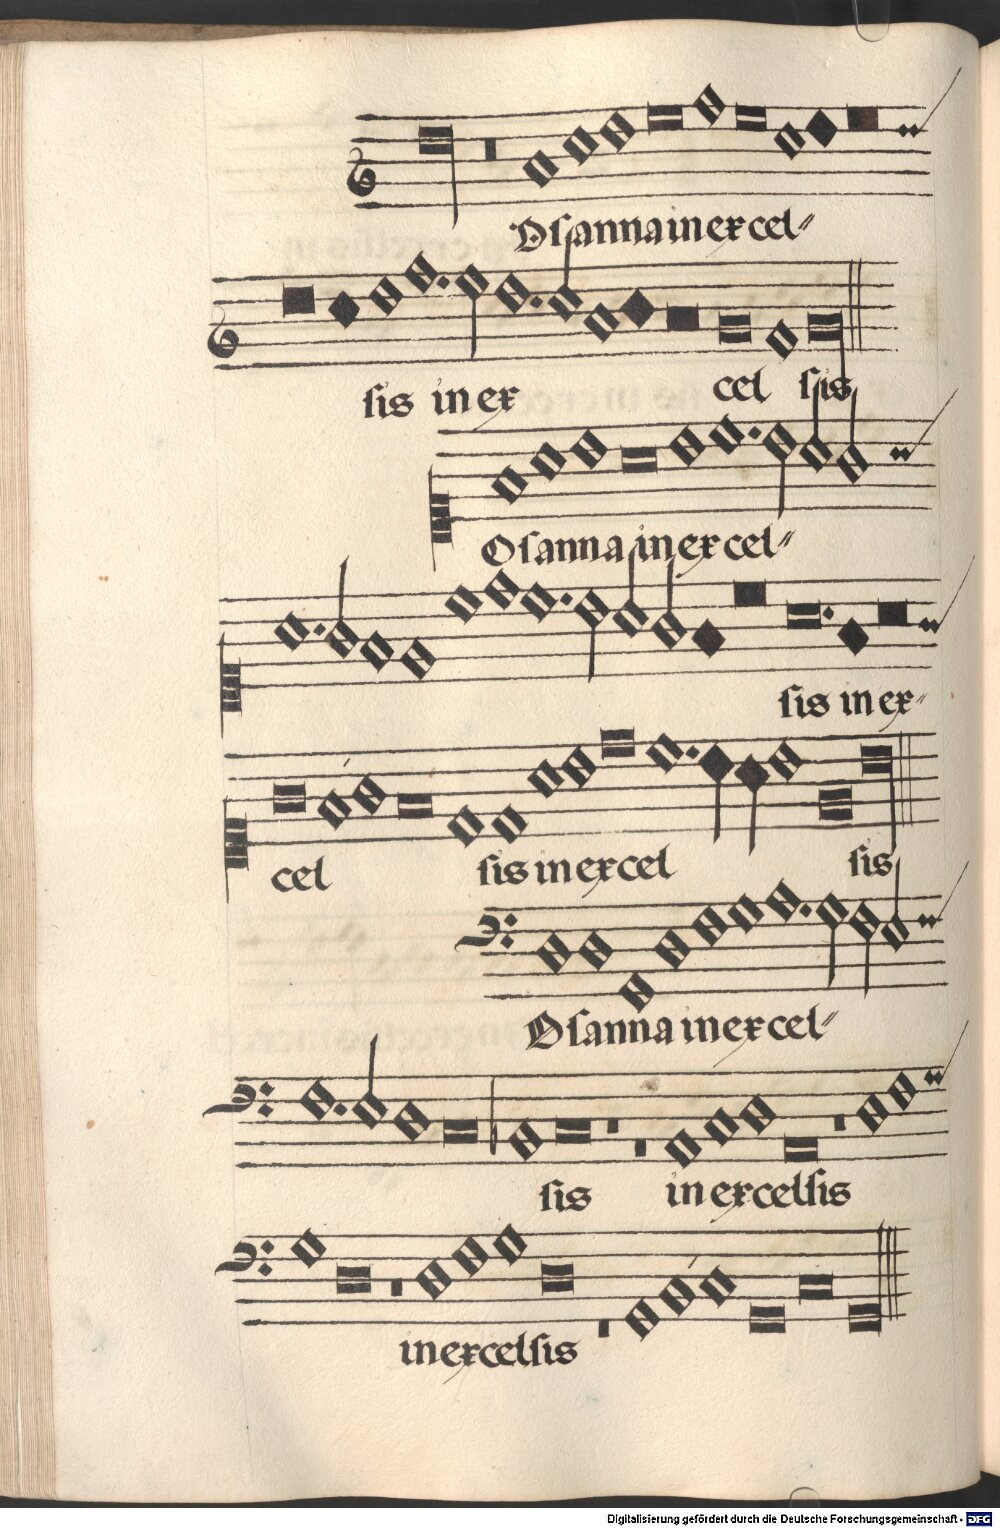 Oſanna in excel⸗
ſis in ex cel ſis
Oſanna in excel⸗
ſis in ex⸗
cel ſis in excel ſis
Oſanna in excel⸗
ſis in excelſis
in excelſis
Digitalisierung gefördert durch die Deutsche Forschungsgemeinschaft - DFG